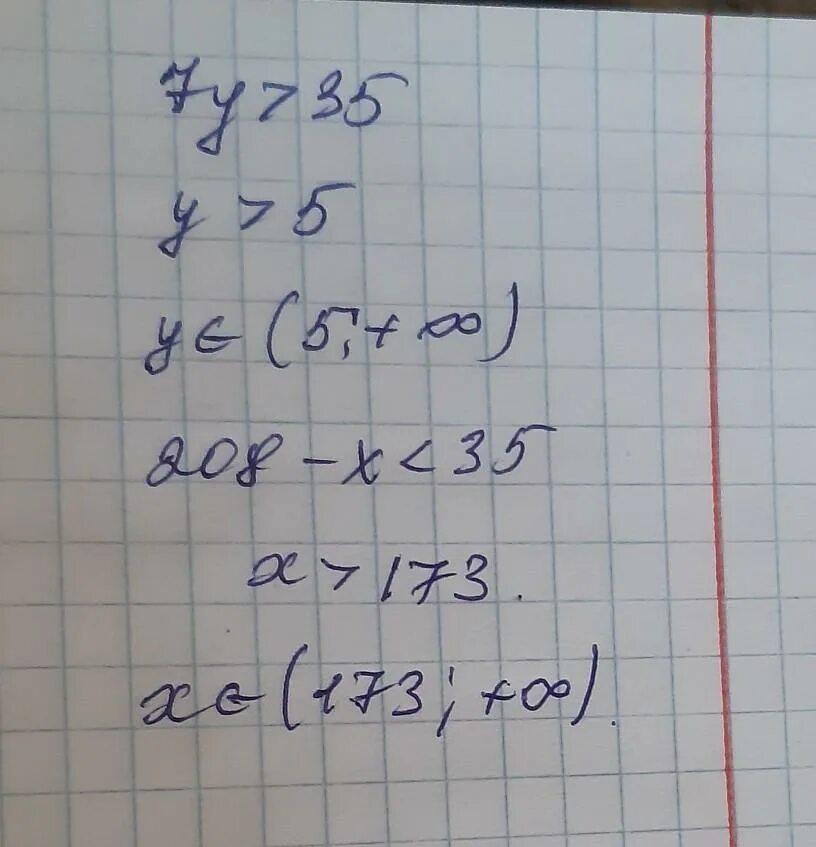 7y > 35
y > 5
y ∈ (5; + ∞)
208 - x < 35
x > 173.
x ∈ (173; +∞).